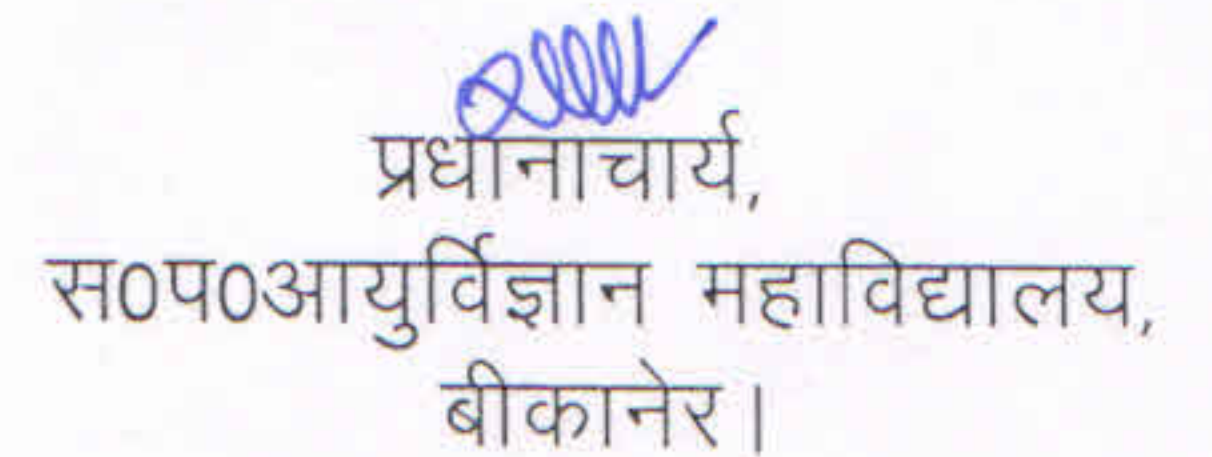 प्रधानाचार्य,
स0प0आयुर्विज्ञान महाविद्यालय,
बीकानेर।